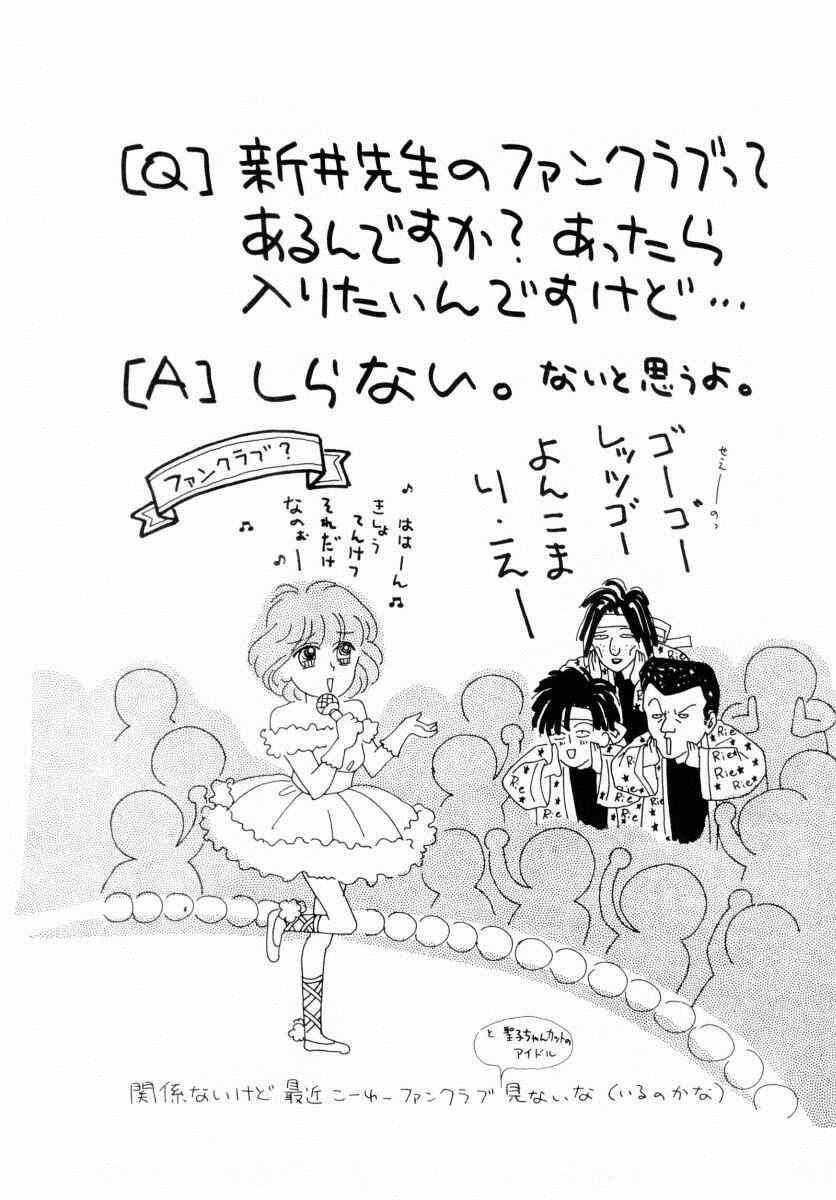 [Q] 新井先生のファンクラブって
あるんですか? あったら
入りたいんですけど…
[A] しらない。ないと思うよ。
ファンクラブ?
せえーのっ
ゴーゴー
レッツゴー
よんこま
り・えー
♪ ははーん ♫
きしょう
てんけつ
それだけ
なのぉー
♪
♫
Rie
Rie
Rie
Rie
Rie
Rie
Rie
Rie
と 聖子ちゃんカットの
アイドル
関係ないけど 最近 こーゆーファンクラブ 見ないな (いるのかな)